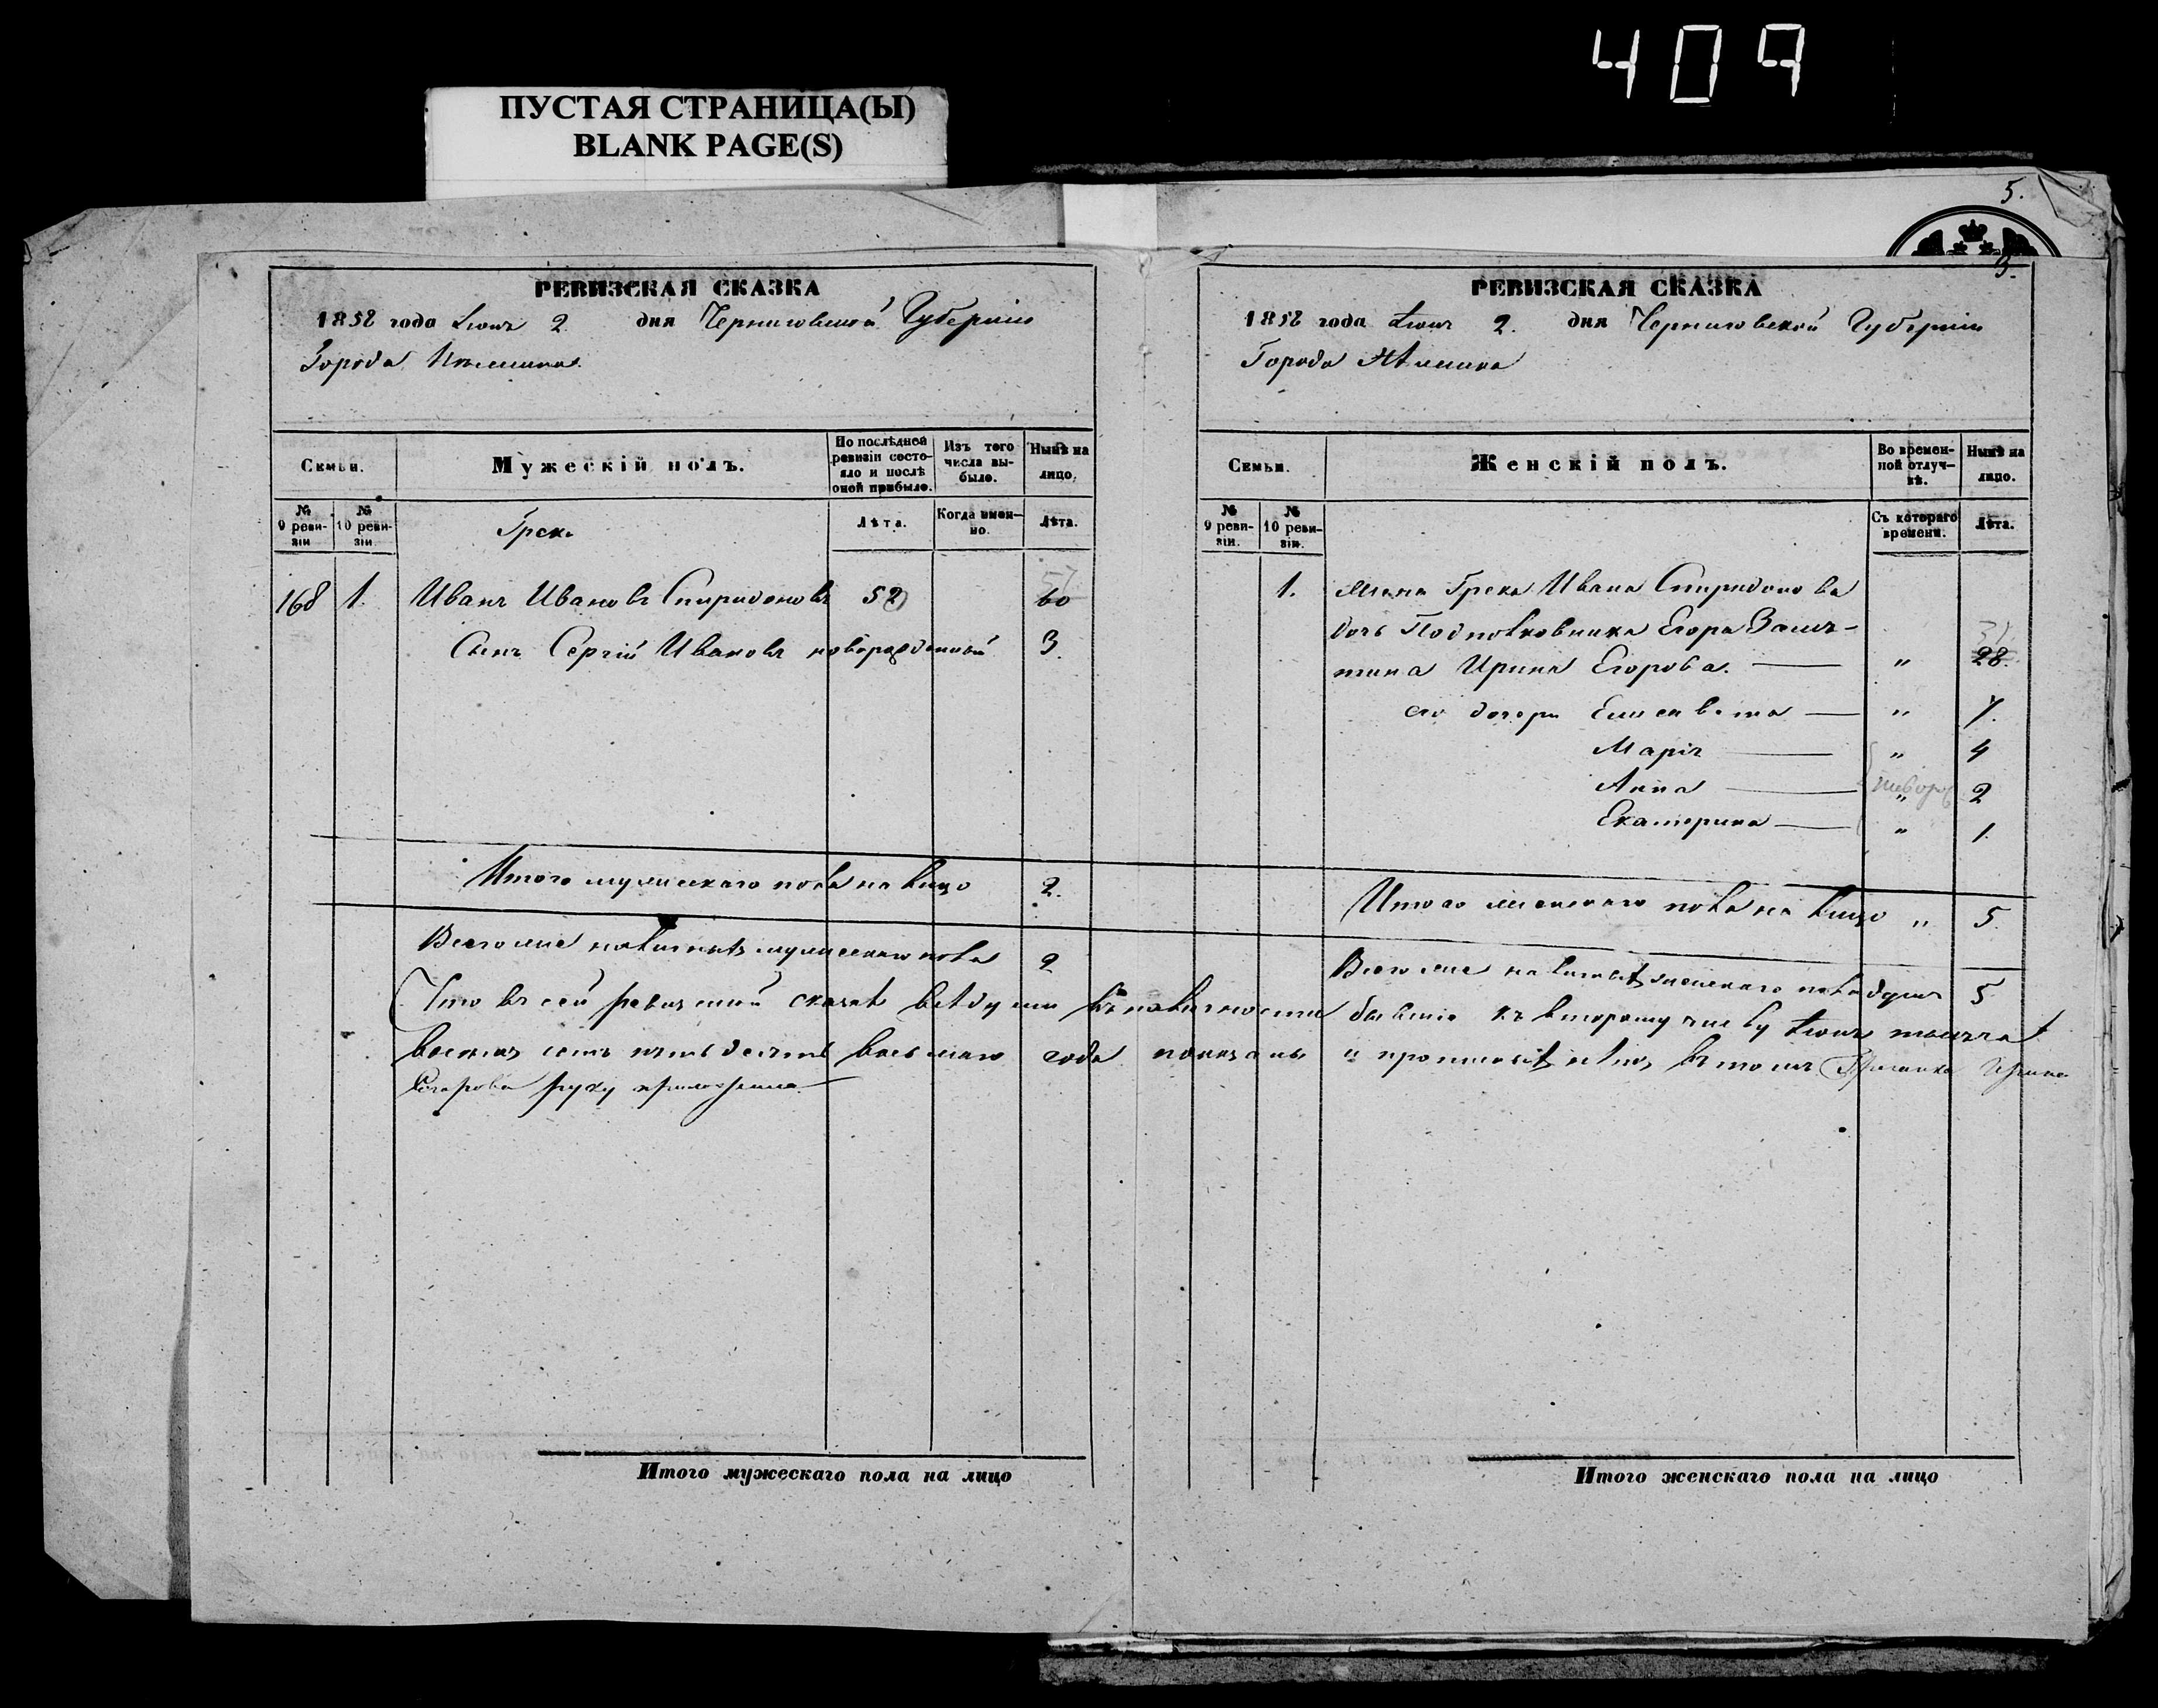 409
ПУСТАЯ СТРАНИЦА(Ы)
BLANK PAGE(S)
5.
РЕВИЗСКАЯ СКАЗКА
1858 года Іюня 2 дня Черниговской Губерніи
Города Нѣжина
Семьи.
Мужескій полъ.
По послѣдней ревизіи состояло и послѣ оной прибыло.
Изъ того числа выбыло.
Нынѣ на лицо.
№ 9 ревизіи
№ 10 ревизіи.
Грек.
Лѣта.
Когда именно.
Лѣта.
168 1. Иванъ Ивановъ Спиридоновъ 52 60
57
Сынъ Сергій Ивановъ новорожденный 3.
Итого мужескаго пола на лицо 2.
Всего мужескаго пола 2
РЕВИЗСКАЯ СКАЗКА
1858 года Іюня 2. дня Черниговской Губерніи
Города Нѣжина
Семьи.
Женскій полъ.
Во временной отлучкѣ.
Нынѣ на лицо.
№ 9 ревизіи.
№ 10 ревизіи.
Съ котораго времени.
Лѣта.
1. Жена Грека Ивана Спиридонова
дочь Подполковника Егора
Ирина Егорова. — " 28.
его дочери Елисавета — " 7.
Марія — " 4
Анна — " 2
Екатерина — " 1.
Итого женскаго пола на лицо " 5.
Всего женскаго пола душъ 5
Что въ сей ревизской сказкѣ всѣ души въ наличности бывшіе къ второму числу Іюня тысяча
восемь сотъ пятьдесятъ восьмаго года показаны и прописныхъ нѣтъ, въ томъ Гречанка Ирина
Егорова руку приложила
Итого мужескаго пола на лицо
Итого женскаго пола на лицо